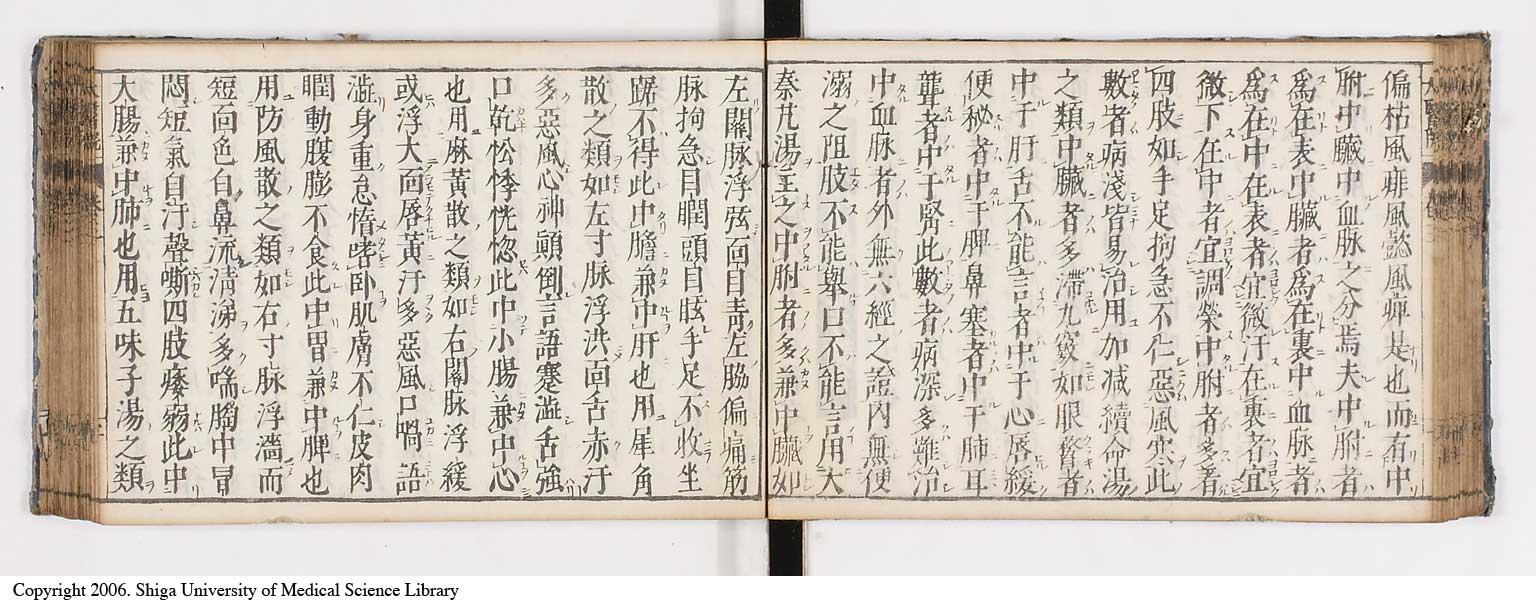 偏枯風痱風懿風痺是也而有中
腑中臓中血脉之分焉夫中腑者
爲在表中臓者爲在裏中血脉者
爲在中在表者宜微汗在裏者宜
微下在中者宜調榮中腑者多着
四肢如手足拘急不仁惡風寒此
數者病淺皆易治用加减續命湯
之類中臓者多滯九竅如眼瞀者
中于肝舌不能言者中于心唇緩
便秘者中于脾鼻塞者中于肺耳
聾者中于腎此數者病深多難治
中血脉者外無六經之證内無便
溺之阻肢不能舉口不能言用大
秦芃湯主之中腑者多兼中臓如
左關脉浮弦面目青左脇偏痛筋
脉拘急目瞤頭目眩手足不收坐
踞不得此中膽兼中肝也用犀角
散之類如左寸脉浮洪面舌赤汗
多惡風心神顛倒言語蹇澁舌強
口乾忪悸恍惚此中小腸兼中心
也用麻黄散之類如右關脉浮緩
或浮大面唇黄汗多惡風口喎語
澁身重怠惰嗜卧肌膚不仁皮肉
瞤動腹膨不食此中胃兼中脾也
用防風散之類如右寸脉浮濇而
短面色白鼻流清涕多喘胸中冒
悶短氣自汗聲嘶四肢痿弱此中
大腸兼中肺也用五味子湯之類
Copyright 2006. Shiga University of Medical Science Library